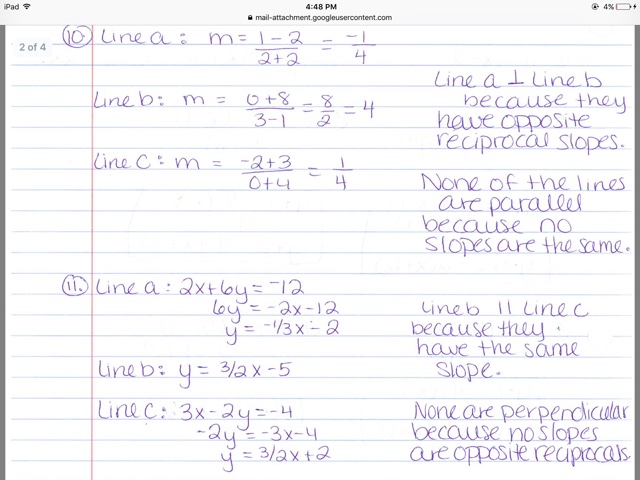 iPad 4:48 PM 4%
mail-attachment.googleusercontent.com
2 of 4
10. Line a: m = 1-2/2+2 = -1/4
Line b: m = 0+8/3-1 = 8/2 = 4
Line C: m = -2+3/0+4 = 1/4
Line a ⊥ Line b
because they
have opposite
reciprocal slopes.
None of the lines
are parallel
because no
slopes are the same.
11. Line a: 2x+6y=-12
6y = -2x-12
y = -1/3x-2
Line b: y = 3/2x-5
Line C: 3x-2y=-4
-2y=-3x-4
y = 3/2x+2
Line b || Line C
because they
have the same
slope.
None are perpendicular
because no slopes
are opposite reciprocals